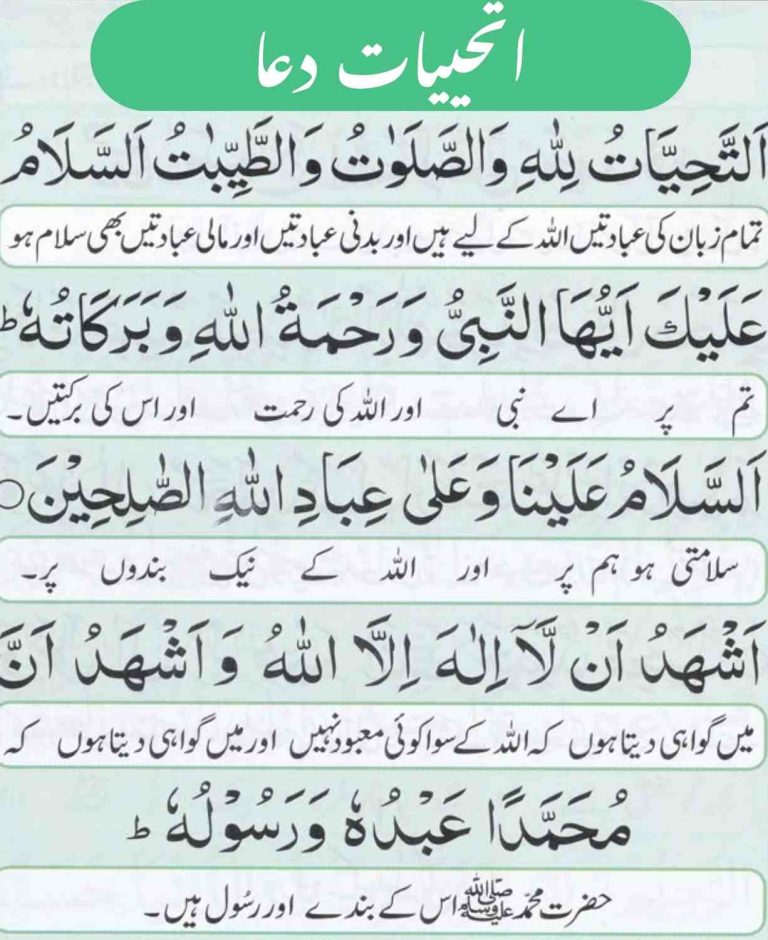 التحیات دعا
اَلتَّحِيَّاتُ لِلّٰهِ وَالصَّلَوٰتُ وَالطَّيِّبٰتُ اَلسَّلَامُ
تمام زبان کی عبادتیں اللہ کے لیے ہیں اور بدنی عبادتیں اور مالی عبادتیں بھی سلام ہو
عَلَيْكَ اَيُّهَا النَّبِيُّ وَرَحْمَةُ اللّٰهِ وَبَرَكَاتُهٗ ط
تم پر اے نبی اور اللہ کی رحمت اور اس کی برکتیں۔
اَلسَّلَامُ عَلَيْنَا وَعَلٰى عِبَادِ اللّٰهِ الصّٰلِحِيْنَ ○
سلامتی ہو ہم پر اور اللہ کے نیک بندوں پر۔
اَشْهَدُ اَنْ لَّآ اِلٰهَ اِلَّا اللّٰهُ وَاَشْهَدُ اَنَّ
میں گواہی دیتا ہوں کہ اللہ کے سوا کوئی معبود نہیں اور میں گواہی دیتا ہوں کہ
مُحَمَّدًا عَبْدُهٗ وَرَسُوْلُهٗ ط
حضرت محمّد ﷺ اس کے بندے اور رسُول ہیں۔